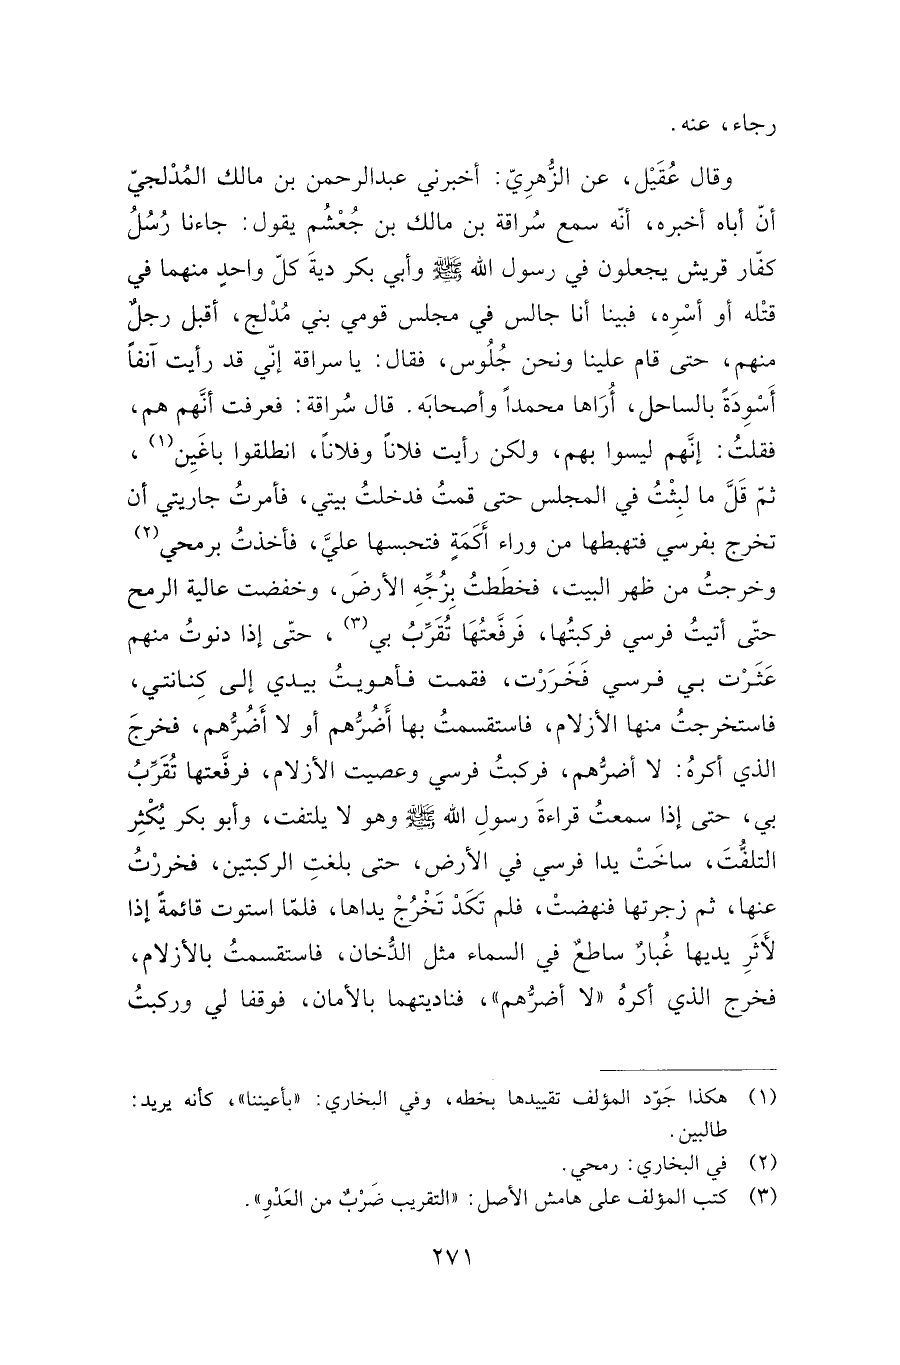 رجاء، عنه.
وقال عُقَيْل، عن الزُّهرِيّ: أخبرني عبدالرحمن بن مالك المُدْلجيّ
أنّ أباه أخبره، أنّه سمع سُراقة بن مالك بن جُعْشُم يقول: جاءنا رُسُلُ
كفّار قريش يجعلون في رسول الله ﷺ وأبي بكر ديةَ كلّ واحدٍ منهما في
قتْله أو أسْرِه، فبينا أنا جالس في مجلس قومي بني مُدْلج، أقبل رجلٌ
منهم، حتى قام علينا ونحن جُلُوس، فقال: يا سراقة إنّي قد رأيت آنفاً
أَسْوِدَةً بالساحل، أُرَاها محمداً وأصحابَه. قال سُراقة: فعرفت أنَّهم هم،
فقلتُ: إنَّهم ليسوا بهم، ولكن رأيت فلاناً وفلاناً، انطلقوا باغَين(١)،
ثمّ قَلَّ ما لبِثْتُ في المجلس حتى قمتُ فدخلتُ بيتي، فأمرتُ جاريتي أن
تخرج بفرسي فتهبطها من وراء أَكَمَةٍ فتحبسها عليَّ، فأخذتُ برمحي(٢)
وخرجتُ من ظهر البيت، فخطَطتُ بِزُجِّه الأرضَ، وخفضت عالية الرمح
حتّى أتيتُ فرسي فركبتُها، فَرفَّعتُهَا تُقَرِّبُ بي(٣)، حتّى إذا دنوتُ منهم
عَثَرْت بي فرسي فَخَرَرْت، فقمت فأهويتُ بيدي إلى كِنانتي،
فاستخرجتُ منها الأزلام، فاستقسمتُ بها أَضُرُّهم أو لا أَضُرُّهم، فخرجَ
الذي أكرهُ: لا أضرُّهم، فركبتُ فرسي وعصيت الأزلام، فرفَّعتها تُقَرِّبُ
بي، حتى إذا سمعتُ قراءةَ رسولِ الله ﷺ وهو لا يلتفت، وأبو بكر يُكْثِر
التلفُّتَ، ساخَتْ يدا فرسي في الأرض، حتى بلغتِ الركبتين، فخررْتُ
عنها، ثم زجرتها فنهضتْ، فلم تَكَدْ تَخْرُجْ يداها، فلمّا استوت قائمةً إذا
لأَثَرِ يديها غُبارٌ ساطعٌ في السماء مثل الدُّخان، فاستقسمتُ بالأزلام،
فخرج الذي أكرهُ «لا أضرُّهم»، فناديتهما بالأمان، فوقفا لي وركبتُ
(١) هكذا جَوّد المؤلف تقييدها بخطه، وفي البخاري: «بأعيننا»، كأنه يريد:
طالبين.
(٢) في البخاري: رمحي.
(٣) كتب المؤلف على هامش الأصل: «التقريب ضَرْبٌ من العَدْوِ».
٢٧١